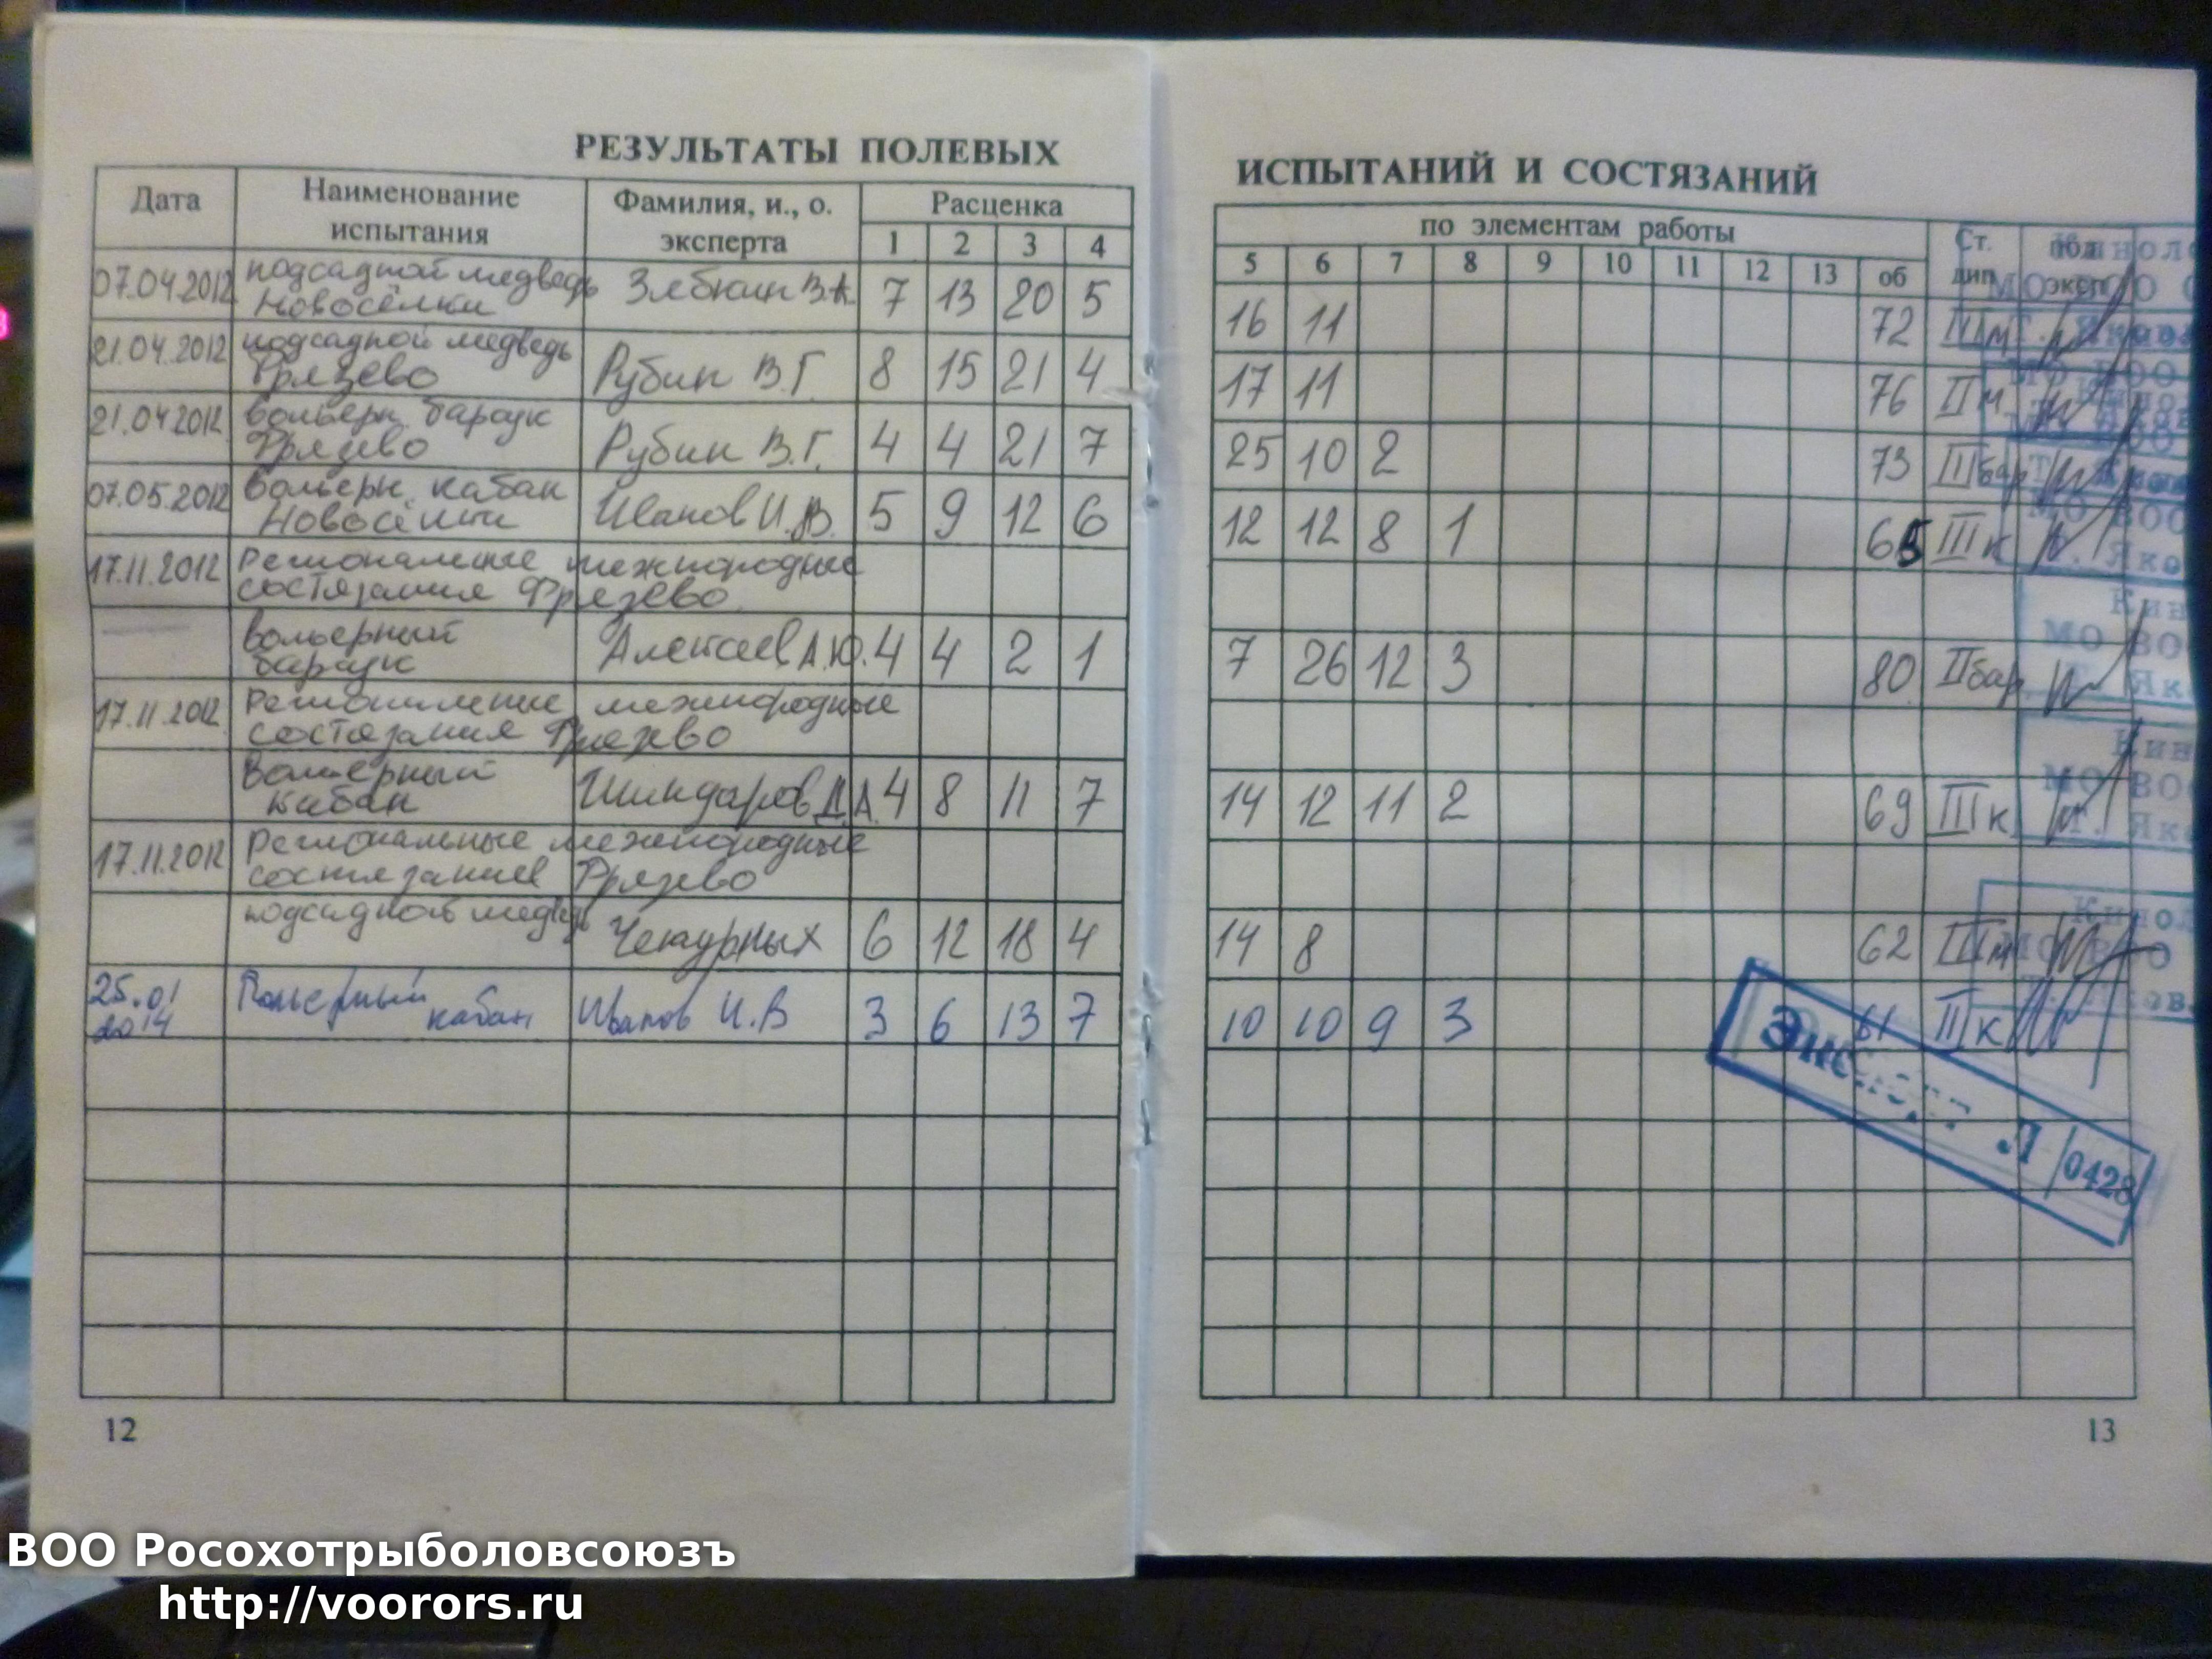 РЕЗУЛЬТАТЫ ПОЛЕВЫХ
Дата Наименование испытания Фамилия, и., о. эксперта Расценка
1 2 3 4
07.04.2012 подсадной медведь Новосёлки В.А. 7 13 20 5
21.04.2012 подсадной медведь Фрязево Рубин В.Г. 8 15 21 4
21.04.2012 вольерн. барсук Фрязево Рубин В.Г. 4 4 21 7
07.05.2012 вольерн. кабан Новосёлки Иванов И.В. 5 9 12 6
17.11.2012 Региональные межпородные
состязания Фрязево
вольерный барсук Алексеев А.Ю. 4 4 2 1
17.11.2012 Региональные межпородные
состязания Фрязево
Вольерный кабан Шиндаров Д.А. 4 8 11 7
17.11.2012 Региональные межпородные
состязания Фрязево
подсадной медведь 6 12 18 4
25.01 2014 Вольерный кабан Иванов И.В 3 6 13 7
12
ИСПЫТАНИЙ И СОСТЯЗАНИЙ
по элементам работы Ст. дип
5 6 7 8 9 10 11 12 13 об
16 11 72 IIIм
17 11 76 IIм
25 10 2 73 IIIбар
12 12 8 1 65 IIIк
7 26 12 3 80 IIбар
14 12 11 2 69 IIIк
14 8 62 IIIм
10 10 9 3 61 IIIк
Эксперт Л 0428
13
ВОО Росохотрыболовсоюзъ
http://voorors.ru